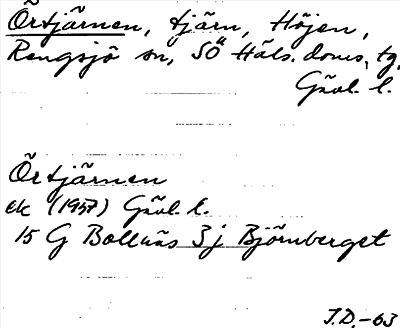 Örtjärnen, tjärn, Höjen,
Rengsjö sn, SÖ Häls. doms. tg,
Gävl. l.
Örtjärnen
ek (1957) Gävl. l.
15 G Bollnäs 3 j Björnberget
J.D.-63